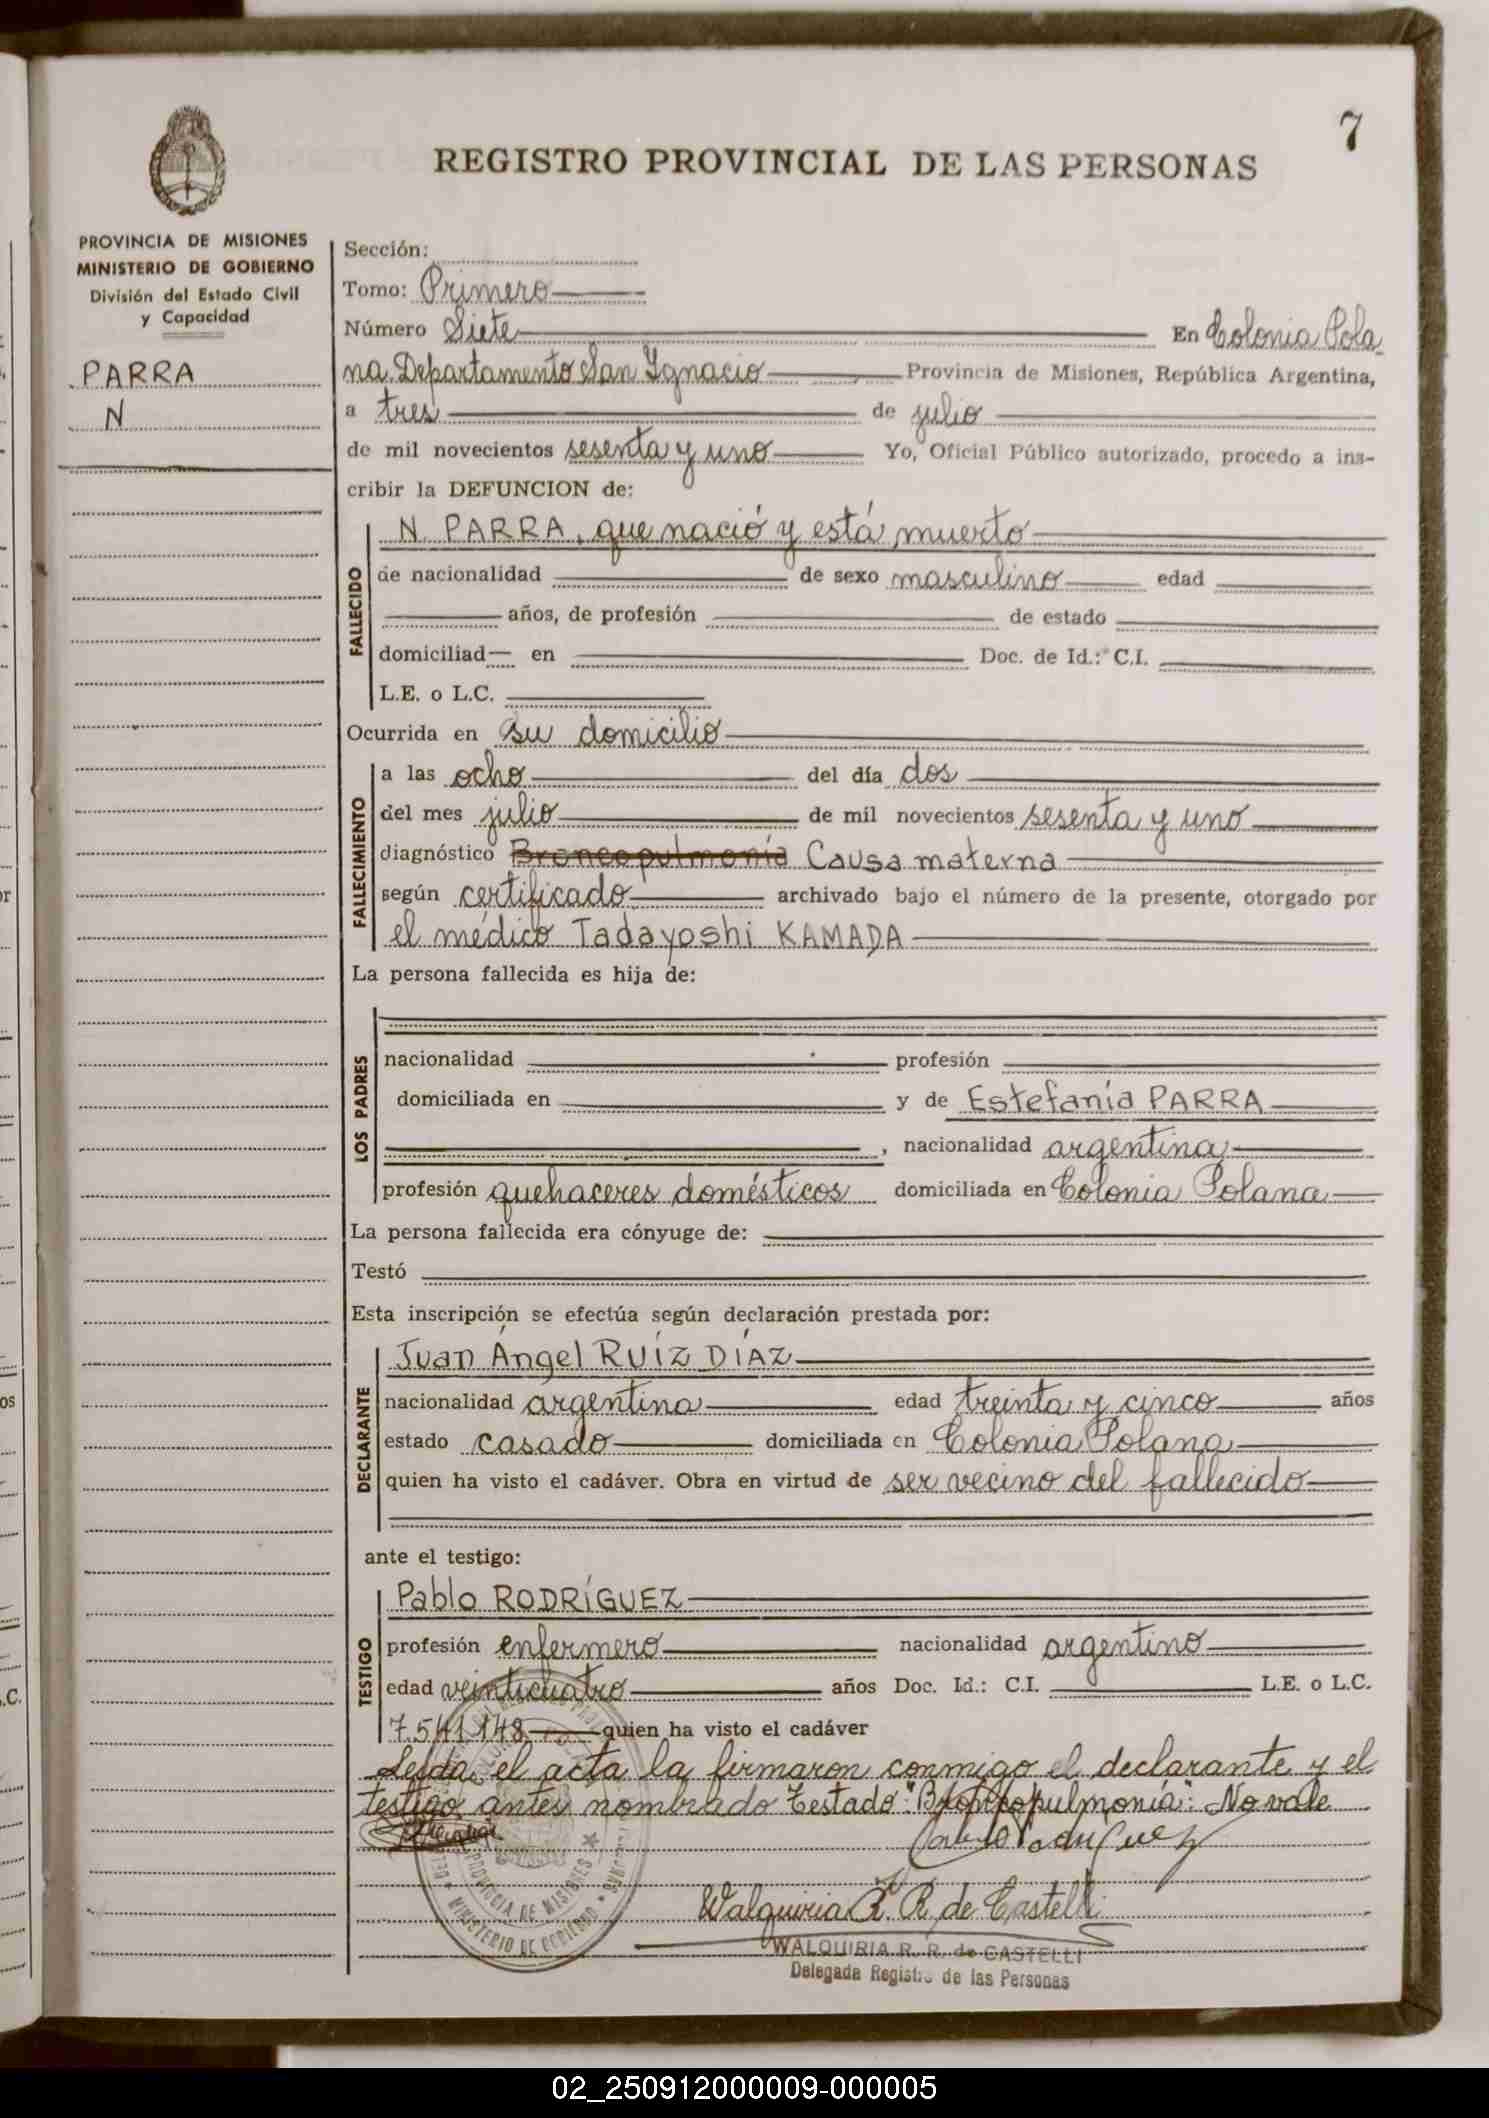 7
REGISTRO PROVINCIAL DE LAS PERSONAS
PROVINCIA DE MISIONES
MINISTERIO DE GOBIERNO
División del Estado Civil
y Capacidad
PARRA
N
Sección:
Tomo: Primero
Número Siete En Colonia Pola
na Departamento San Ignacio Provincia de Misiones, República Argentina,
a tres de julio
de mil novecientos sesenta y uno Yo, Oficial Público autorizado, procedo a ins-
cribir la DEFUNCION de:
FALLECIDO
N PARRA, que nació y está muerto
de nacionalidad de sexo masculino edad
años, de profesión de estado
domiciliad— en Doc. de Id.: C.I.
L.E. o L.C.
Ocurrida en su domicilio
FALLECIMIENTO
a las ocho del día dos
del mes julio de mil novecientos sesenta y uno
diagnóstico Broncopulmonía Causa materna
según certificado archivado bajo el número de la presente, otorgado por
el médico Tadayoshi KAMADA
La persona fallecida es hija de:
LOS PADRES
nacionalidad profesión
domiciliada en y de Estefanía PARRA
, nacionalidad argentina
profesión quehaceres domésticos domiciliada en Colonia Polana
La persona fallecida era cónyuge de:
Testó
Esta inscripción se efectúa según declaración prestada por:
DECLARANTE
Juan Ángel RUÍZ DÍAZ
nacionalidad argentina edad treinta y cinco años
estado casado domiciliada en Colonia Polana
quien ha visto el cadáver. Obra en virtud de ser vecino del fallecido
ante el testigo:
TESTIGO
Pablo RODRÍGUEZ
profesión enfermero nacionalidad argentino
edad veinticuatro años Doc. Id.: C.I. L.E. o L.C.
7.541.148 quien ha visto el cadáver
Leída el acta la firmaron conmigo el declarante y el
testigo antes nombrado Testado: "Broncopulmonía": No vale
Pablo Rodriguez
PROVINCIA DE MISIONES
MINISTERIO DE GOBIERNO
Walquiria R. R. de Castelli
WALQUIRIA R. R. de CASTELLI
Delegada Registro de las Personas
02_250912000009-000005